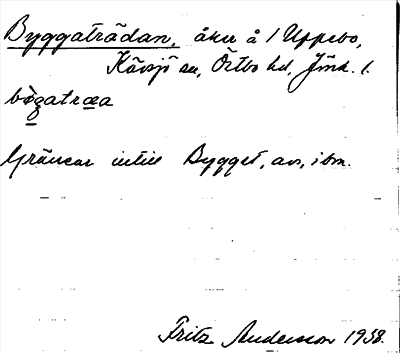 Byggaträdan, åker å 1 Uppebo,
Kävsjö sn, Östbo hd, Jönk. l.
bògatræa
Gränsar intill Bygget, avs, ibm.
Fritz Andersson 1958.